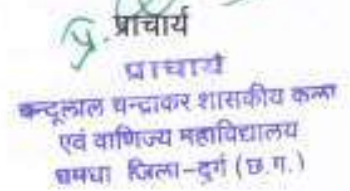 प्र. प्राचार्य
प्राचार्य
चन्दूलाल चन्द्राकर शासकीय कला
एवं वाणिज्य महाविद्यालय
धमधा जिला-दुर्ग (छ.ग.)